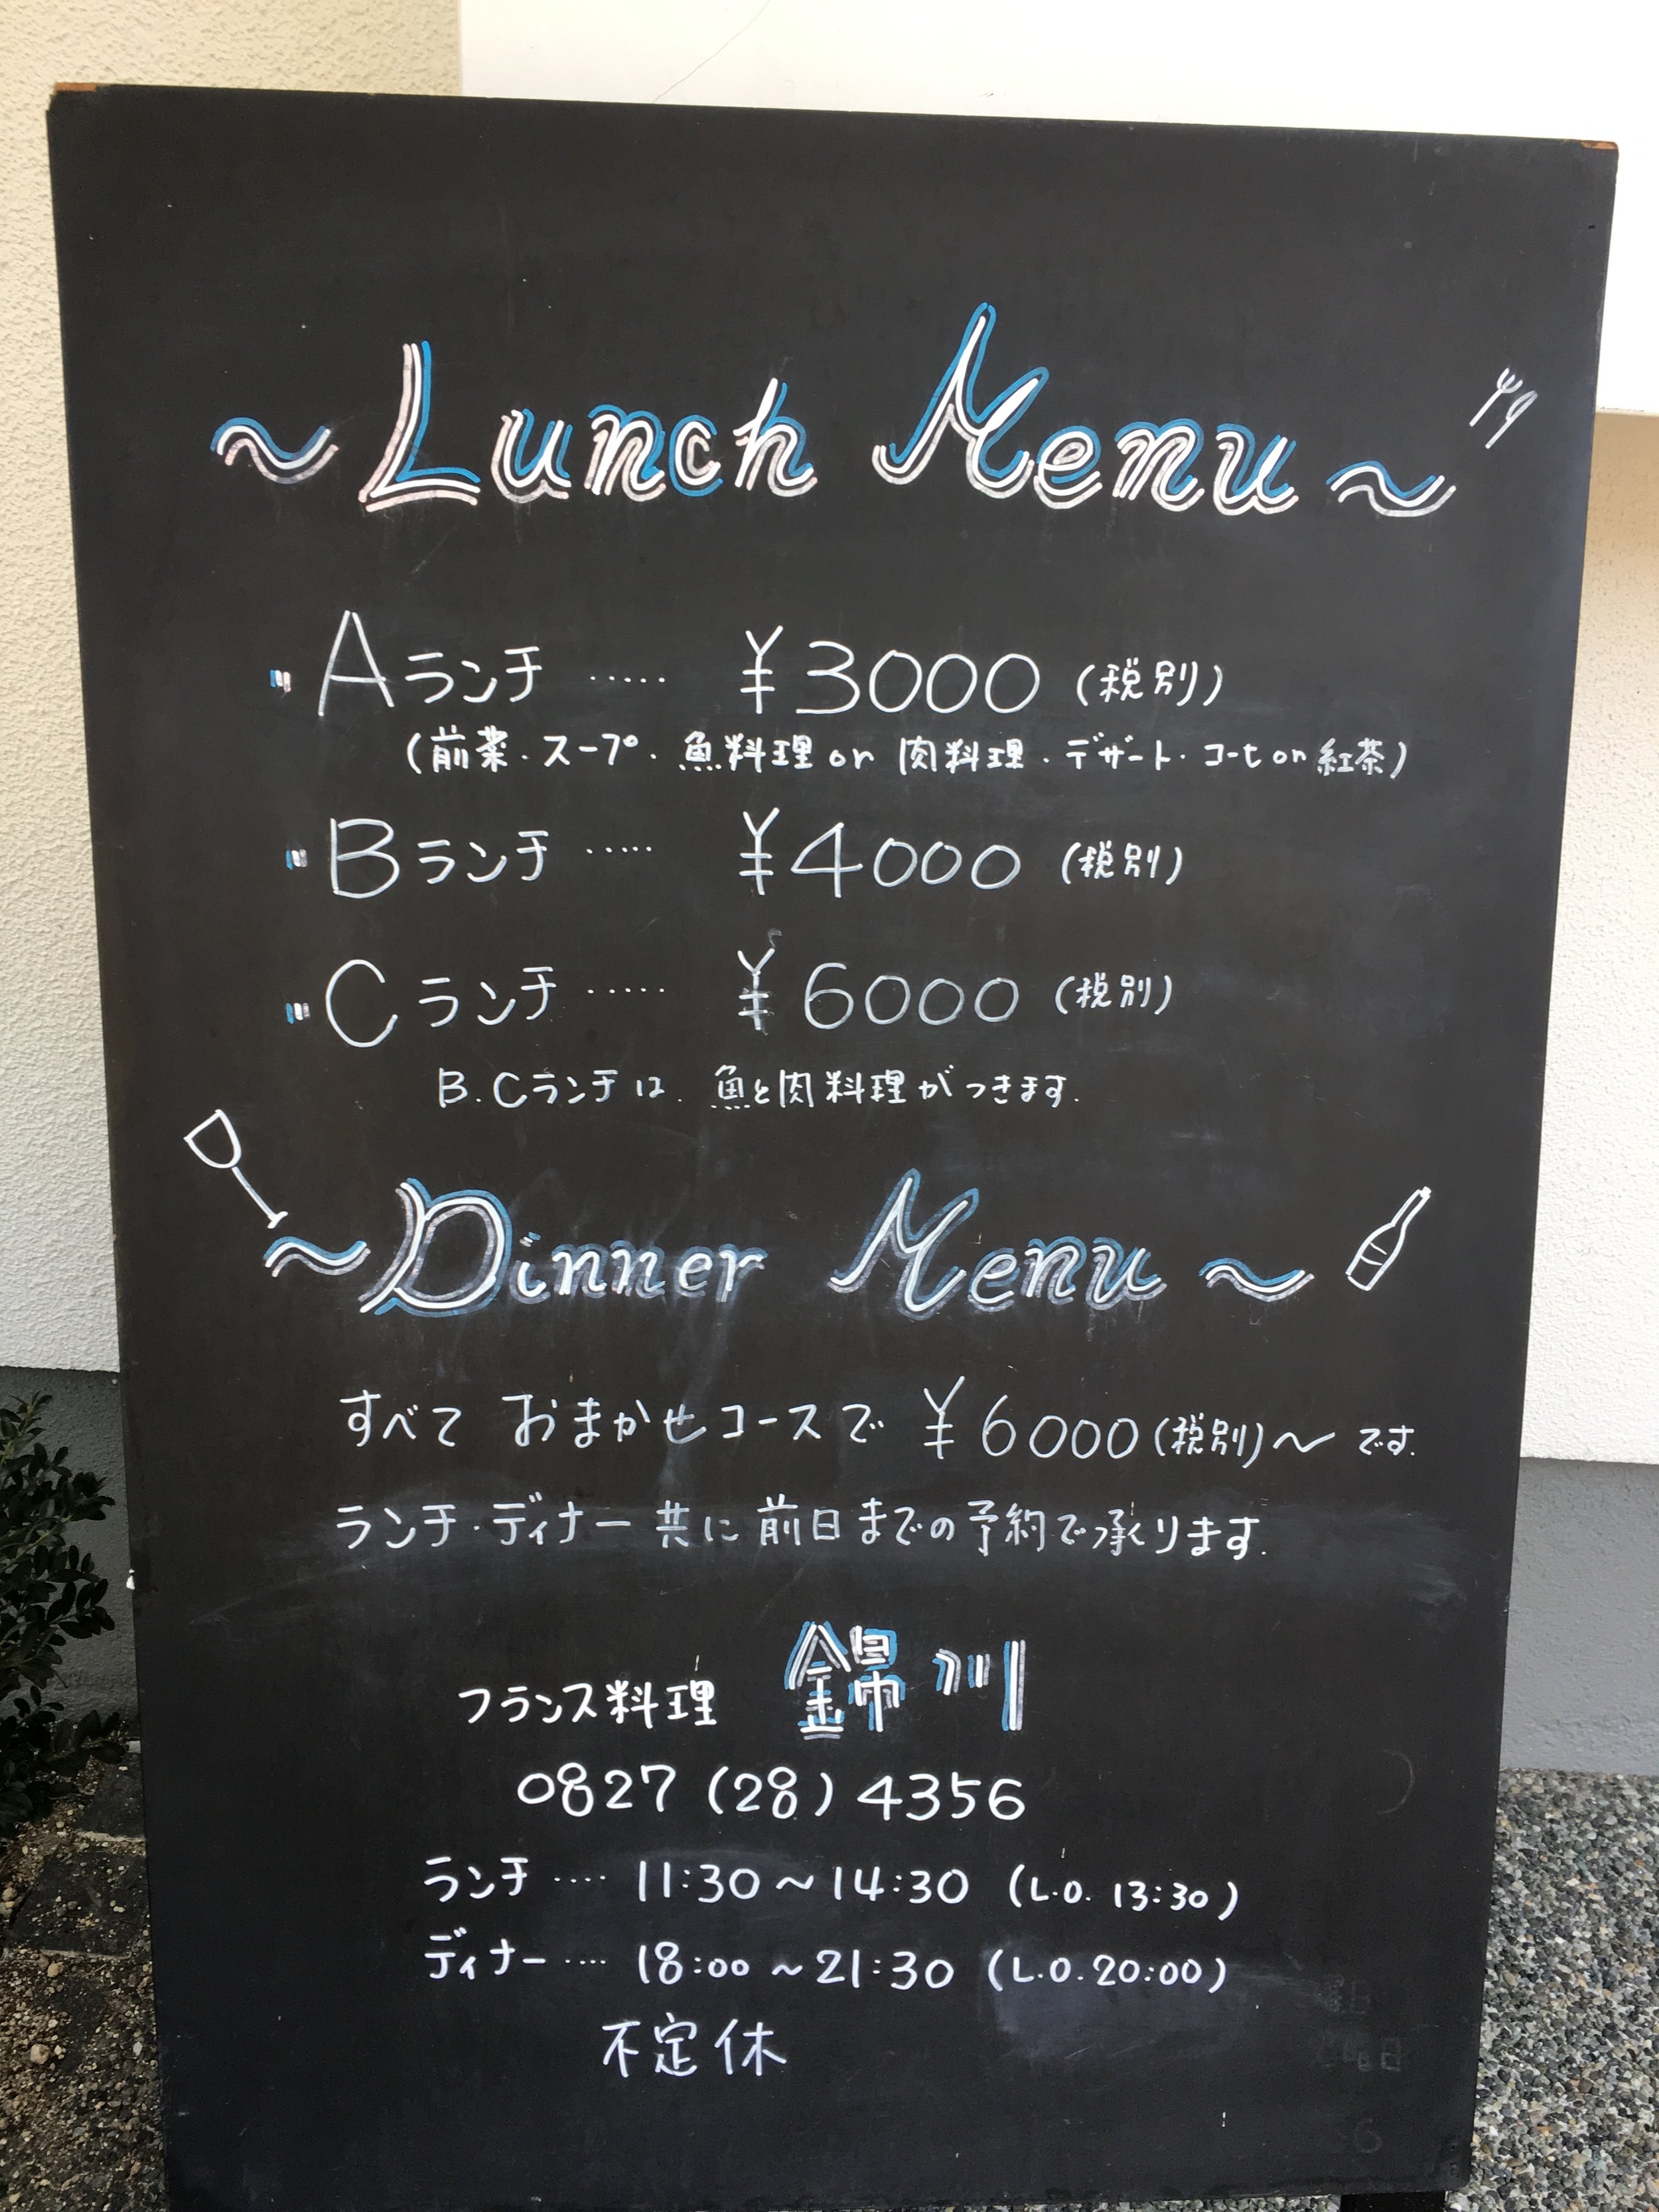 ~Lunch Menu~
Aランチ ····· ¥3000 (税別)
(前菜・スープ・魚料理 or 肉料理・デザート・コーヒ or 紅茶)
Bランチ ····· ¥4000 (税別)
Cランチ ····· ¥6000 (税別)
B.Cランチは 魚と肉料理がつきます.
~Dinner Menu~
すべて おまかせコースで ¥6000(税別)~です.
ランチ・ディナー共に前日までの予約で承ります.
フランス料理 錦川
0827 (28) 4356
ランチ ···· 11:30~14:30 (L.O. 13:30)
ディナー ···· 18:00~21:30 (L.O.20:00)
不定休